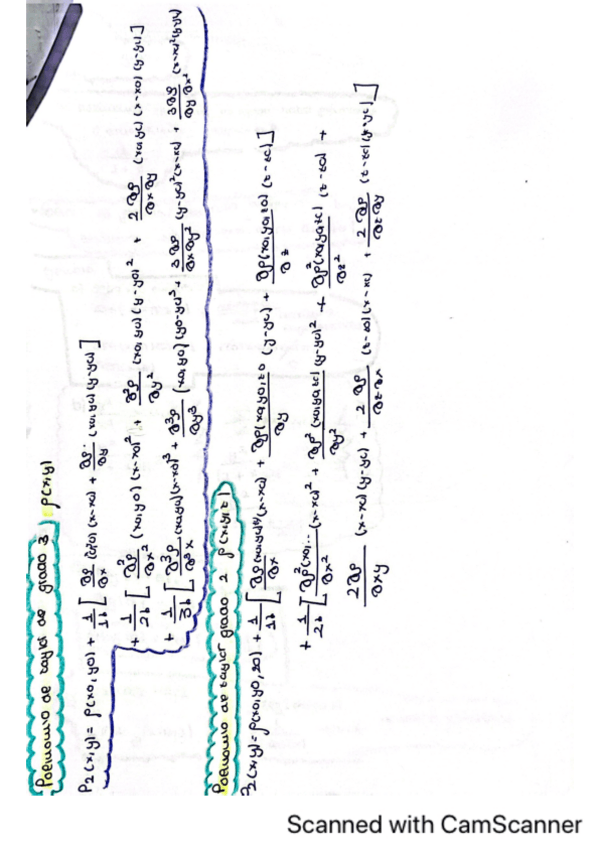 Polinomio de taylor de grado 3 f(x,y)
P2(x,y) = f(x0,y0) + 1/1! [ ∂f/∂x (x0,y0) (x-x0) + ∂f/∂y (x0,y0)(y-y0) ]
+ 1/2! [ ∂²f/∂x² (x0,y0) (x-x0)² + ∂²f/∂y² (x0,y0) (y-y0)² + 2∂f/∂x∂y (x0,y0) (x-x0) (y-y0) ]
+ 1/3! [ ∂³f/∂³x (x0,y0)(x-x0)³ + ∂³f/∂y³ (x0,y0) (y0-y0)³ + 3∂f/∂x∂y² (y-y0)²(x-x0) + 3∂f/∂y∂x² (x-x0)²(y-y0)
Polinomio de taylor grado 2 f(x,y,z)
P2(x,y) = f(x0,y0,z0) + 1/1! [ ∂f(x0,y0,z0)/∂x (x-x0) + ∂f(x0,y0,z0)/∂y (y-y0) + ∂f(x0,y0,z0)/∂z (z-z0) ]
+ 1/2! [ ∂²f(x0,.../∂x² (x-x0)² + ∂f²(x0,y0,z0)/∂y² (y-y0)² + ∂²f(x0,y0,z0)/∂z² (z-z0) +
2∂f/∂xy (x-x0) (y-y0) + 2∂f/∂z∂x (z-z0) (x-x0) + 2∂f/∂z∂y (z-z0)(y-y0) ]
Scanned with CamScanner